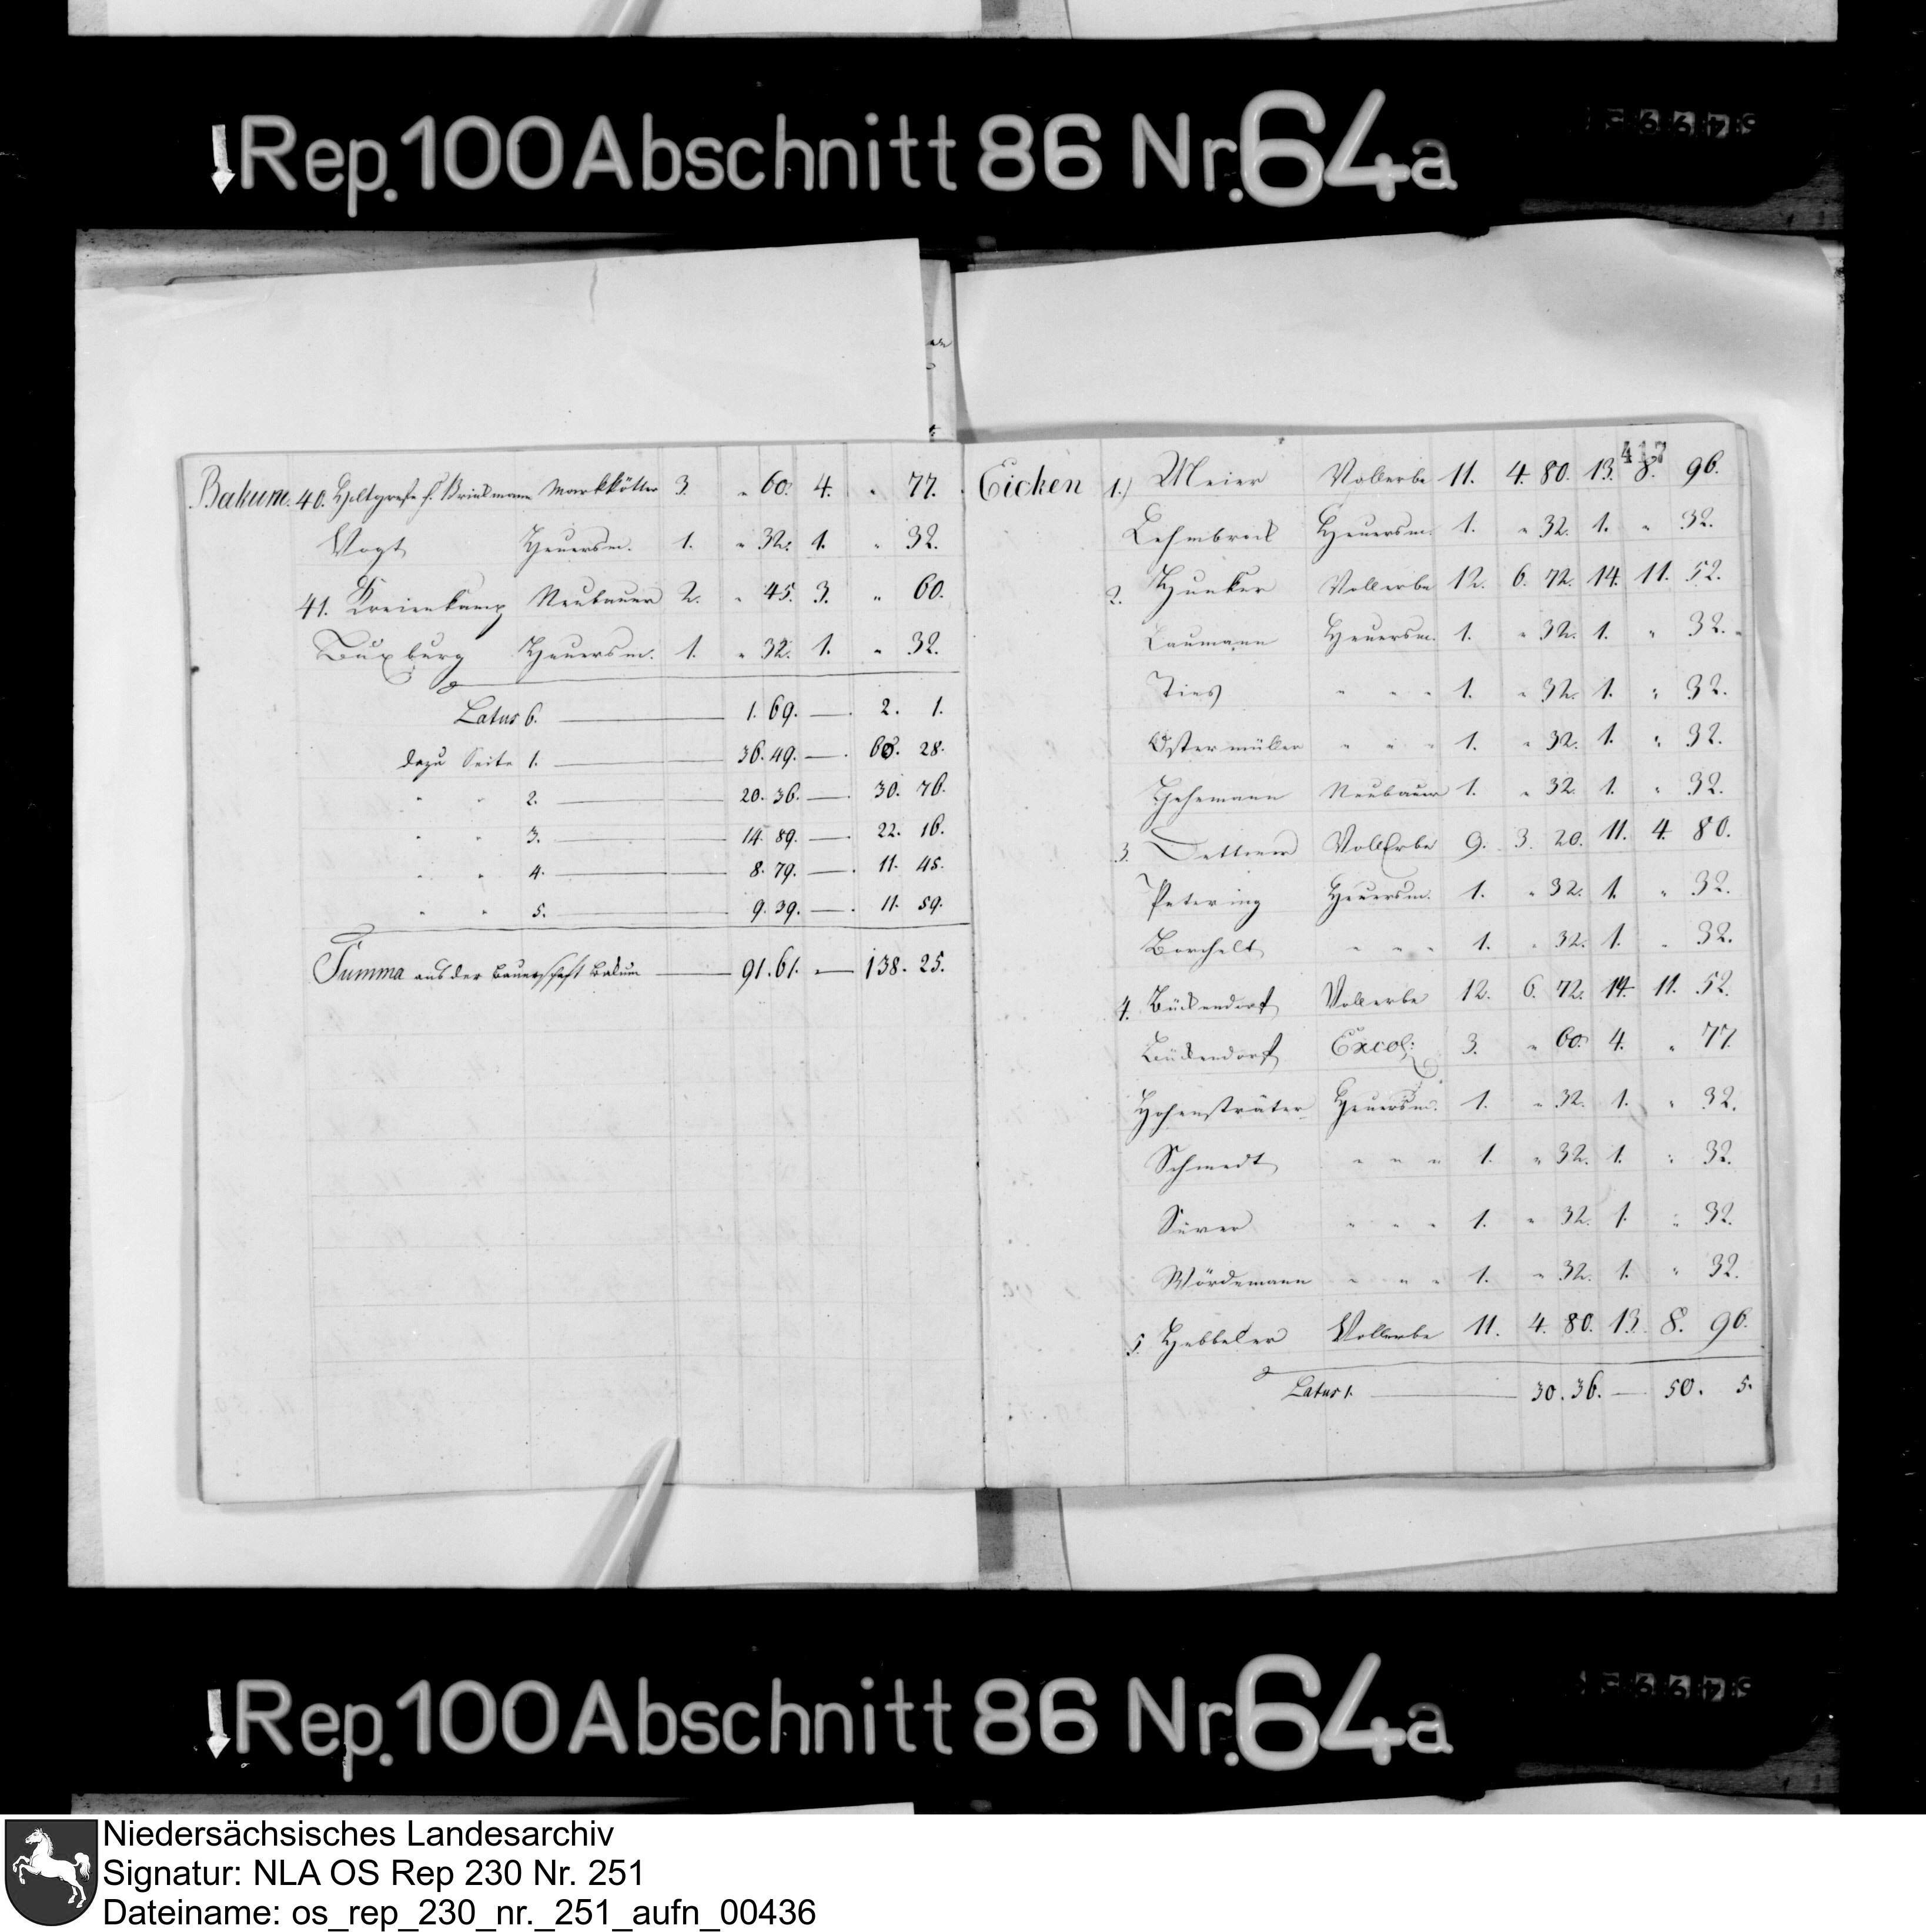 Rep. 100 Abschnitt 86 Nr. 64a
Bakum. 40. Holtgrefe s. Brinkmann Markkötter 3. " 60. 4. " 77.
Vogt Heuersm. 1. " 32. 1. " 32.
41. Kreienkamp Neubauer 2. " 45. 3. " 60.
Buxburg Heuersm. 1. " 32. 1. " 32.
Latus 6. 1. 69. — 2. 1.
dazu Seite 1. 36. 49. — 60. 28.
" " 2. 20. 36. — 30. 76.
" " 3. 14. 89. — 22. 16.
" " 4. 8. 79. — 11. 45.
" " 5. 9. 39. — 11. 59.
Summa aus der Bauerschaft Bakum 91. 61. — 138. 25.
417
Eicken 1.) Meier Vollerbe 11. 4. 80. 13. 8. 96.
Lehmbrock Heuersm. 1. " 32. 1. " 32.
2. Hunker Vollerbe 12. 6. 72. 14. 11. 52.
Laumann Heuersm. 1. " 32. 1. " 32.
Ties " " " 1. " 32. 1. " 32.
Ostermüller " " " 1. " 32. 1. " 32.
Hehemann Neubauer 1. " 32. 1. " 32.
3. Dettmer VollErbe 9. 3. 20. 11. 4. 80.
Petering Heuersm. 1. " 32. 1. " 32.
Borchelt " " " 1. " 32. 1. " 32.
4. Bückendorf Vollerbe 12. 6. 72. 14. 11. 52.
Bückendorf Excol: 3. " 60. 4. " 77.
Hohensträter Heuersm. 1. " 32. 1. " 32.
Schmedt " " " 1. " 32. 1. " 32.
Süver " " " 1. " 32. 1. " 32.
Wördemann " " " 1. " 32. 1. " 32.
5. Hebbeler Vollerbe 11. 4. 80. 13. 8. 96.
Latus 1. 30. 36. — 50. 5.
Rep. 100 Abschnitt 86 Nr. 64a
Niedersächsisches Landesarchiv
Signatur: NLA OS Rep 230 Nr. 251
Dateiname: os_rep_230_nr._251_aufn_00436